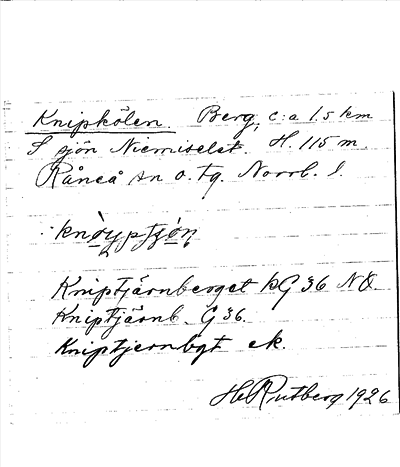 Knipkölen. Berg, c:a 1.5 km
S sjön Niemiselet. H. 115 m
Råneå sn o. tg. Norrb. l.
knòyptjọ̀n
Kniptjärnberget kG 36 NÖ
Kniptjärnb. G 36.
Kniptjernbgt ek.
H Rutberg 1926